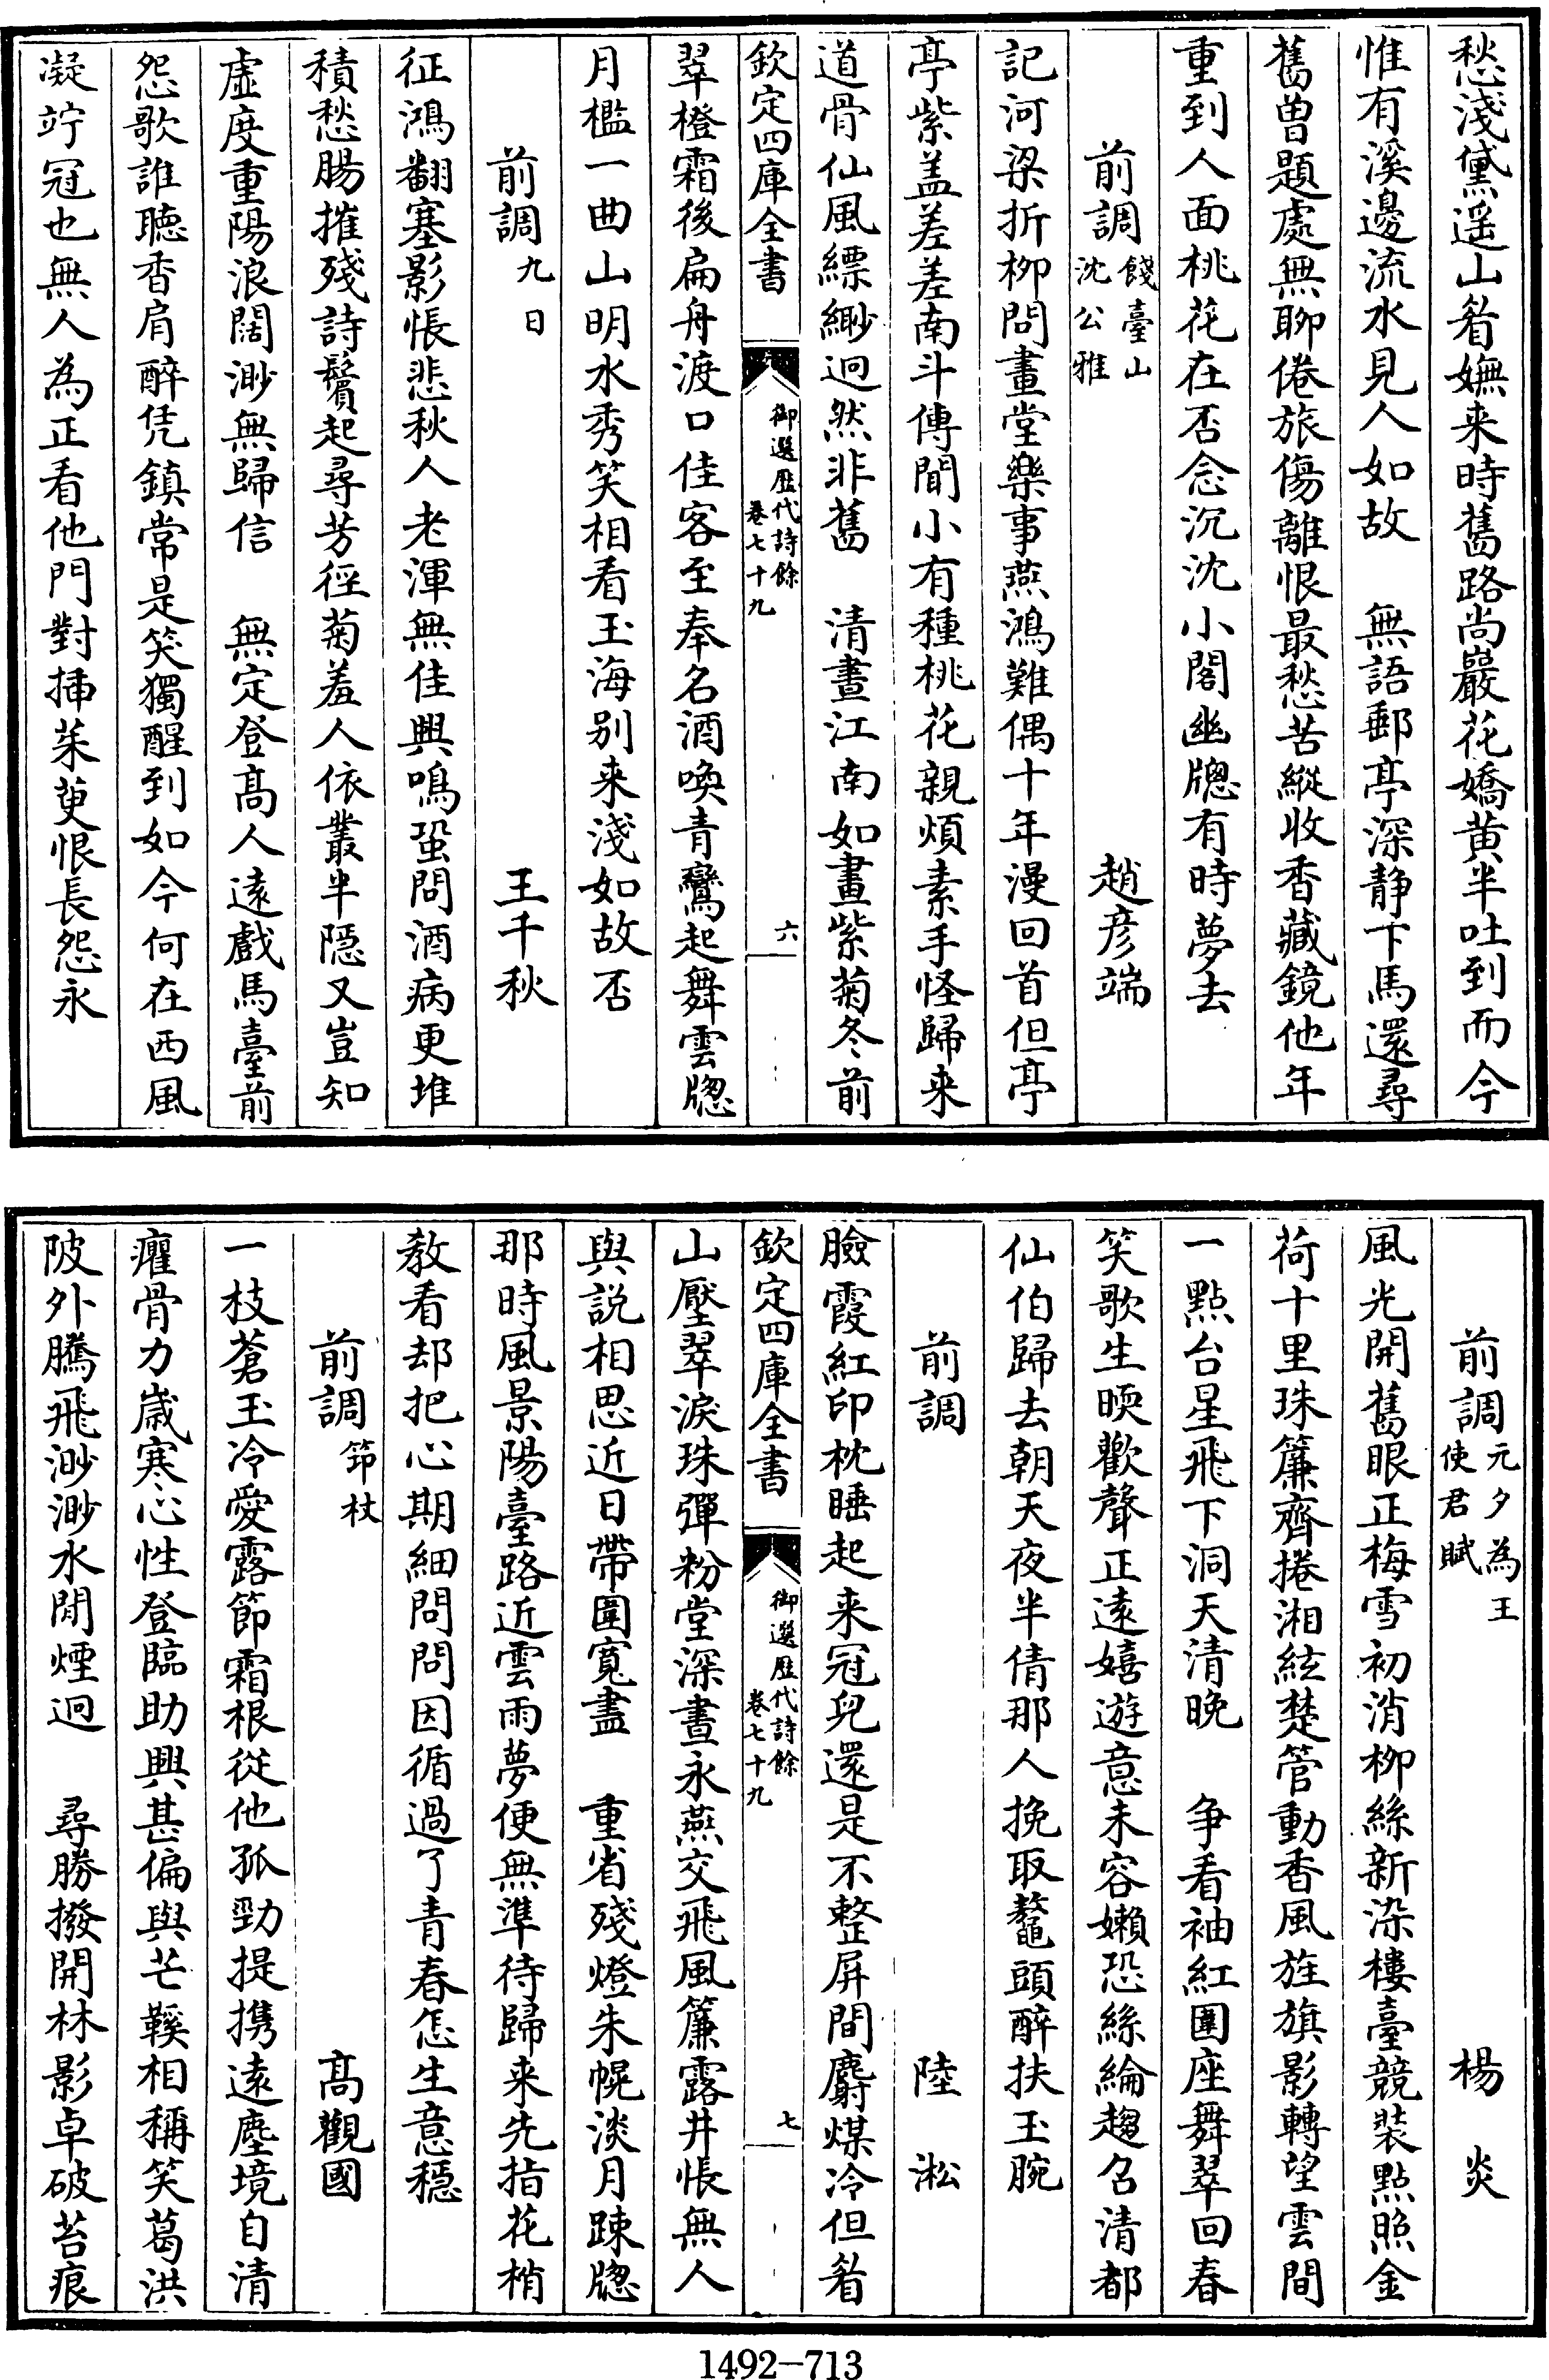 愁淺黛遥山眷嫵来時舊路尚巖花嬌黄半吐到而今
惟有溪邊流水見人如故　無語郵亭深静下馬還尋
舊曽題處無聊倦旅傷離恨最愁苦縱收香藏鏡他年
重到人面桃花在否念沉沈小閣幽牕有時夢去
前調餞臺山沈公雅　趙彦端
記河梁折柳問畫堂樂事燕鴻難偶十年漫回首但亭
亭紫盖差差南斗傳聞小有種桃花親煩素手怪歸来
道骨仙風縹緲迥然非舊　清晝江南如畫紫菊冬前
欽定四庫全書　御選歷代詩餘卷七十九　六
翠橙霜後扁舟渡口佳客至奉名酒喚青鸞起舞雲牕
月檻一曲山明水秀笑相看玉海别来淺如故否
前調九日　王千秋
征鴻翻塞影悵悲秋人老渾無佳興鳴蛩問酒病更堆
積愁腸摧殘詩鬢起尋芳徑菊羞人依叢半隠又豈知
虚度重陽浪闊渺無歸信　無定登髙人遠戲馬臺前
怨歌誰聴香肩醉凭鎮常是笑獨醒到如今何在西風
凝竚冠也無人為正看他門對挿茱萸恨長怨永
前調元夕為王使君賦　楊炎
風光開舊眼正梅雪初消柳絲新染樓臺競裝點照金
荷十里珠簾齊捲湘絃楚管動香風旌旗影轉望雲間
一點台星飛下洞天清晩　争看袖紅圍座舞翠回春
笑歌生暎歡聲正遠嬉遊意未容嬾恐絲綸趨名清都
仙伯歸去朝天夜半倩那人挽取鼇頭醉扶玉腕
前調　陸淞
臉霞紅印枕睡起来冠兒還是不整屏間麝煤冷但眷
欽定四庫全書　御選歷代詩餘卷七十九　七
山壓翠淚珠彈粉堂深晝永燕交飛風簾露井悵無人
與説相思近日帶圍寛盡　重省殘燈朱幌淡月踈牕
那時風景陽臺路近雲雨夢便無準待歸来先指花梢
教看却把心期細問問因循過了青春怎生意穏
前調笻杖　髙觀國
一枝蒼玉冷愛露節霜根從他孤勁提携遠塵境自清
癯骨力嵗寒心性登臨助興甚偏與芒鞵相稱笑葛洪
陂外騰飛渺渺水閒煙迥　尋勝撥開林影卓破苔痕
1492-713